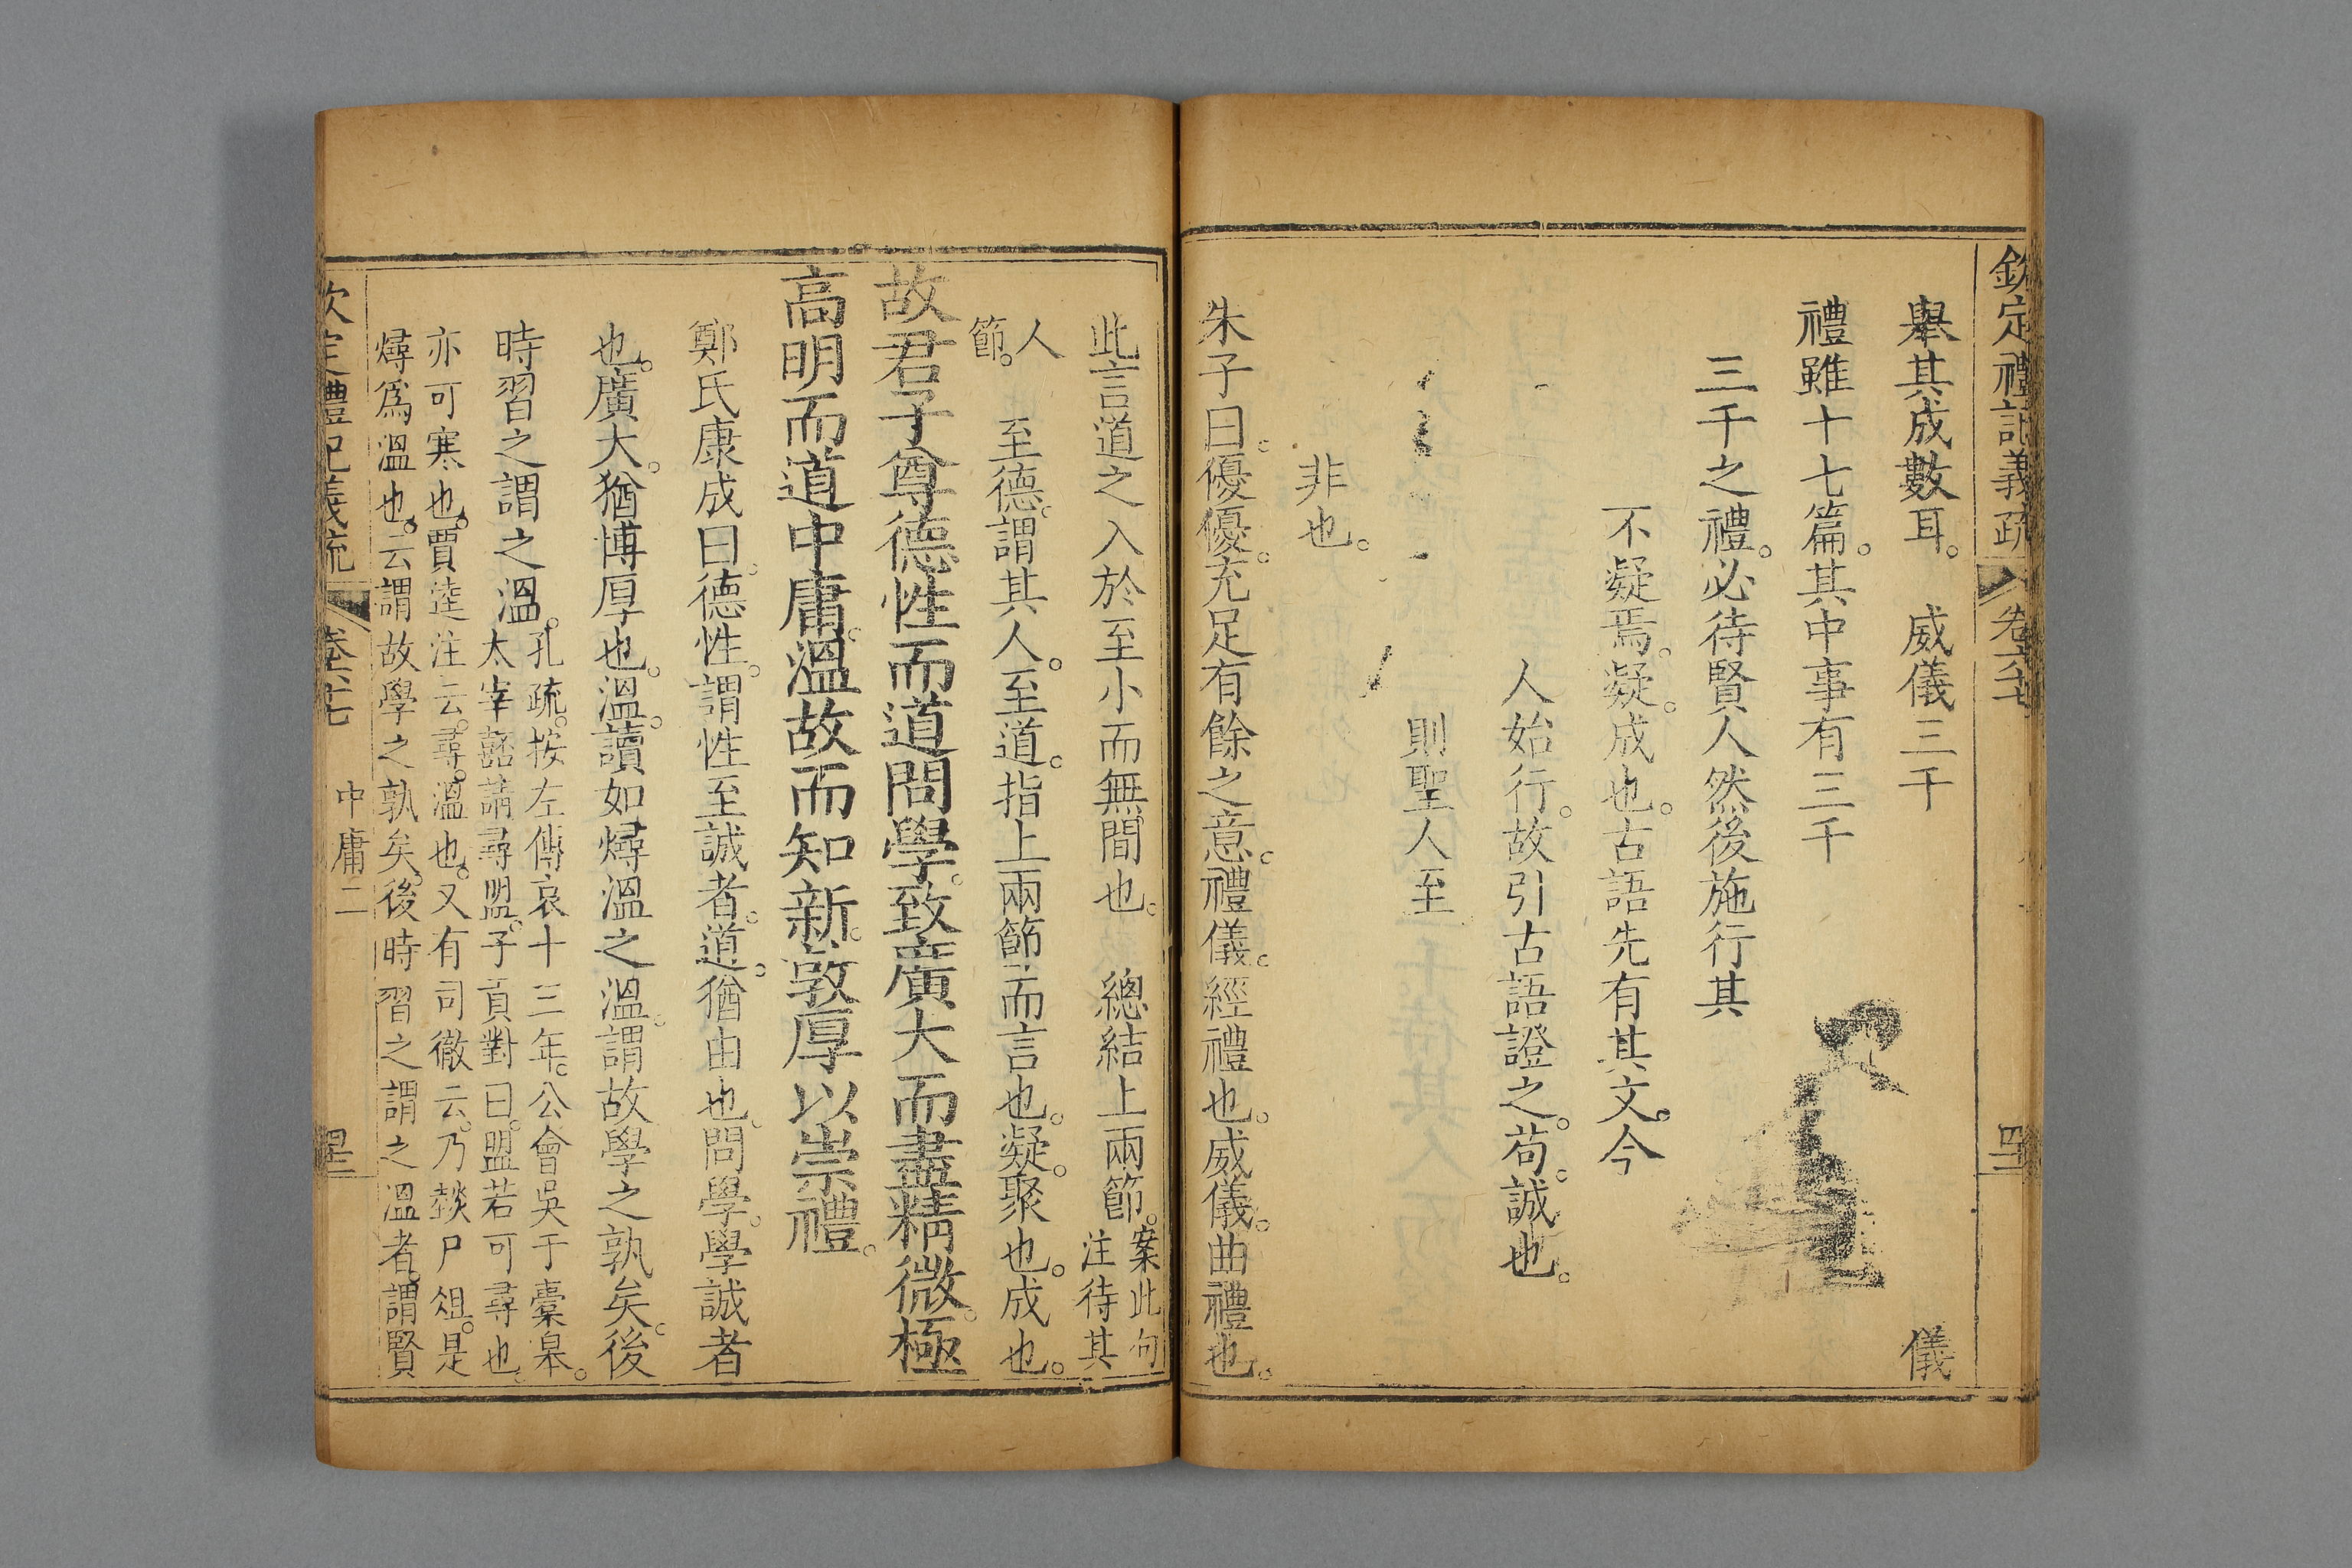 欽定禮記義疏 卷六十七
舉其成數耳。威儀三千 儀
禮雖十七篇。其中事有三千
三千之禮。必待賢人然後施行其
不凝焉。凝。成也。古語先有其文。今
人始行。故引古語證之。苟。誠也。
則聖人至
非也。
朱子曰。優優。充足有餘之意。禮儀。經禮也。威儀。曲禮也。
此言道之入於至小而無間也。總結上兩節。案此句
注待其
人
節。
至德。謂其人。至道。指上兩節而言也。凝。聚也。成也。
故君子尊德性而道問學。致廣大而盡精微。極
高明而道中庸。溫故而知新。敦厚以崇禮。
鄭氏康成曰。德性。謂性至誠者。道。猶由也。問學。學誠者
也。廣大。猶博厚也。溫。讀如燖溫之溫。謂故學之孰矣。後
時習之謂之溫。孔疏。按左傳哀十三年。公會吳于橐皋。
太宰嚭請尋盟。子貢對曰。盟若可尋也。
亦可寒也。賈逵注云。尋。溫也。又有司徹云。乃燅尸俎。是
燖爲溫也。云謂故學之孰矣。後時習之謂之溫者。謂賢
欽定禮記義疏 卷六十七 中庸二